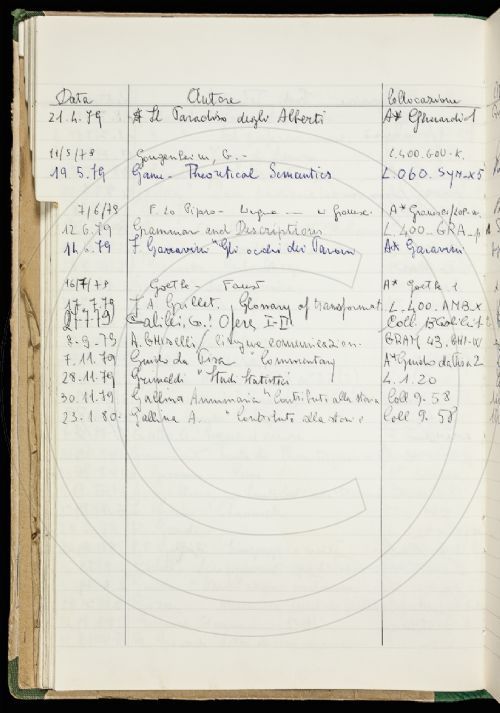 Data Autore Collocazione
21.4.79 Il Paradiso degli Alberti A* Gherardi 1
11/5/79 Gougenheim, G. - L.400.GOU-K.
19.5.79 Game - Theoretical Semantics L.060.Syn-x5
7/6/79 F. Lo Piparo - Lingua in A* Gramsci/LOP
12.6.79 Grammar and Descriptions L.400-GRA
14.6.79 F. Garavini "Gli occhi dei A* Garavini
16/7/79 Goethe - Faust A* Goethe 1
17.7.79 Glossary of transformat. L.400.AMB-X
27.7.79 Galilei, G.: Opere I-II Coll.
8-9-79 A. Ghiselli / lingua comunicazion. GRAM 43.
7.11.79 Guido da Pisa - Commentary A* Guido da Pisa 2
28.11.79 Grimaldi "Studi Statistici L.1.20
30.11.79 Gallina Annamaria "Contributi alla storia Coll 9-58
23-1-80- Gallina A. "Contributi alla storia Coll 9-58